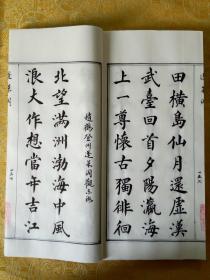 田橫島仙月還虛漢
武臺回首夕陽瀛海
上一尊懷古獨徘徊
趙鶴登州蓬萊閣
北望滿洲渤海中風
浪大作想當年吉江